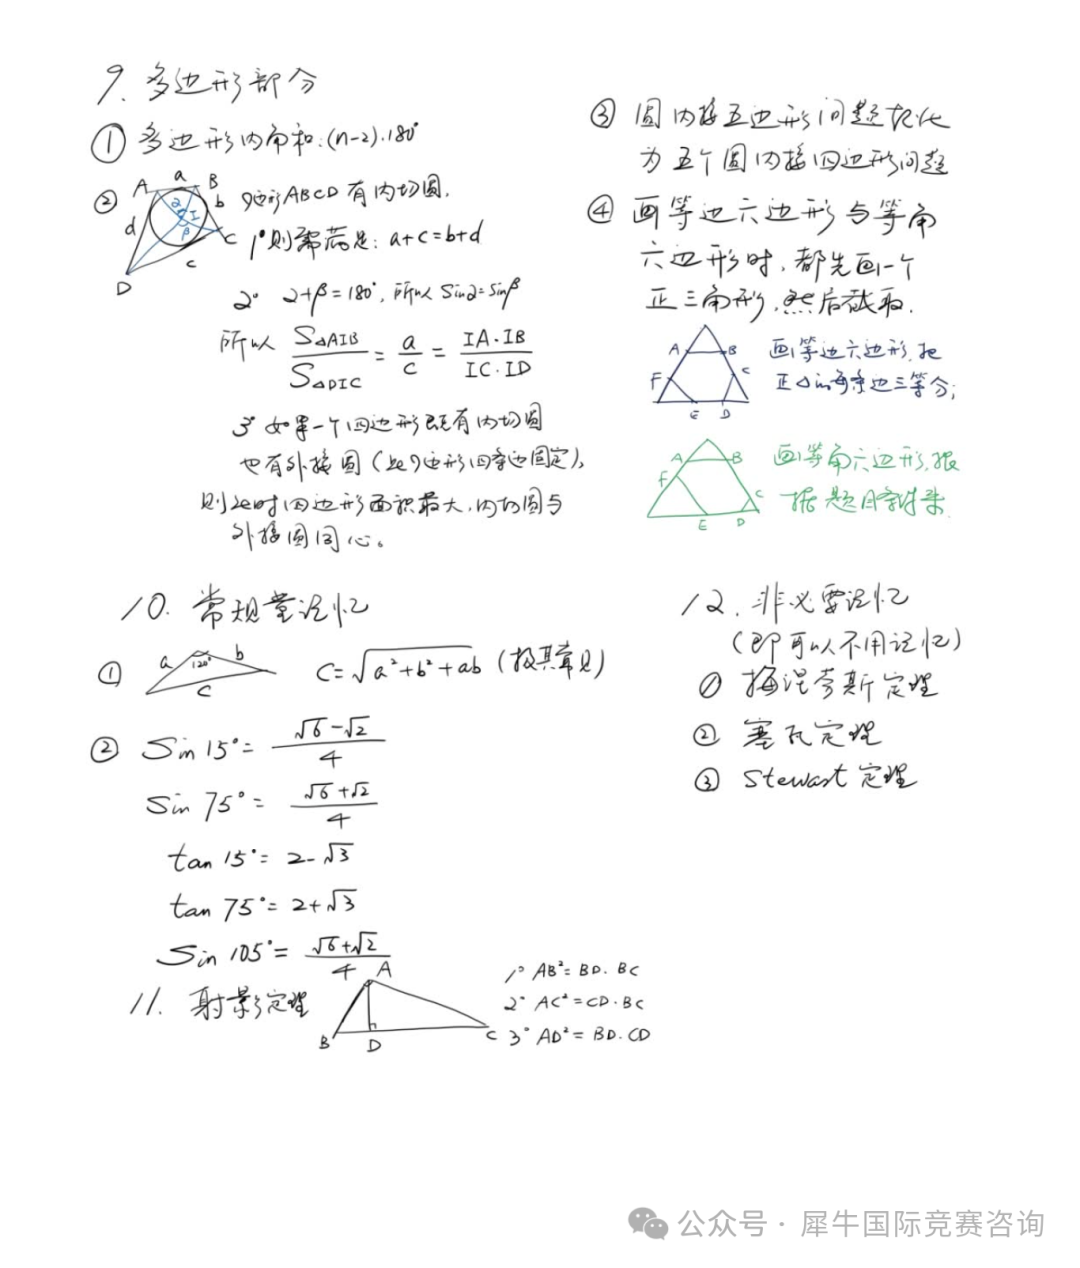 9. 多边形部分
① 多边形内角和:(n-2)·180°
② A a B b C c D d I α β
四边形ABCD有内切圆.
1° 则需满足: a+c=b+d
2° α+β=180°, 所以 sinα=sinβ
所以 S△AIB/S△DIC = a/c = IA·IB/IC·ID
3° 如果一个四边形既有内切圆
也有外接圆(此四边形四条边固定),
则此时四边形面积最大,内切圆与
外接圆同心。
③ 圆内接五边形问题转化
为五个圆内接四边形问题
④ 画等边六边形与等角
六边形时,都先画一个
正三角形,然后截取.
A B C D E F
画等边六边形,把
正△的每条边三等分;
A B C D E F
画等角六边形,根
据题目条件来.
10. 常规量记忆
① a 120° b c C=√a²+b²+ab (极其常见)
② Sin 15°= √6-√2/4
Sin 75°= √6+√2/4
tan 15°= 2-√3
tan 75°= 2+√3
Sin 105°= √6+√2/4
11. 射影定理
A B D C
1° AB²=BD·BC
2° AC²=CD·BC
3° AD²=BD·CD
12. 非必要记忆
(即可以不用记忆)
① 梅涅劳斯定理
② 塞瓦定理
③ Stewart定理
公众号·犀牛国际竞赛咨询